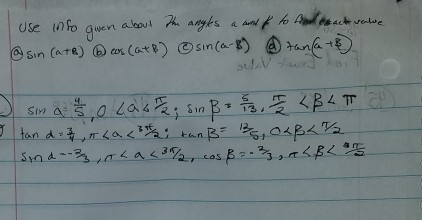 Use info given about the angles α and β to find exact value
ⓐ sin (α+β) ⓑ cos (α+β) ⓒ sin(α-β) ⓓ tan(α+β)
sin α = 4/5, 0 < α < π/2; sin β = 5/13, π/2 < β < π
tan α = 3/4, π < α < 3π/2; tan β = 12/5, 0 < β < π/2
sin α = -2/3, π < α < 3π/2, cos β = -2/3, π < β < 3π/2